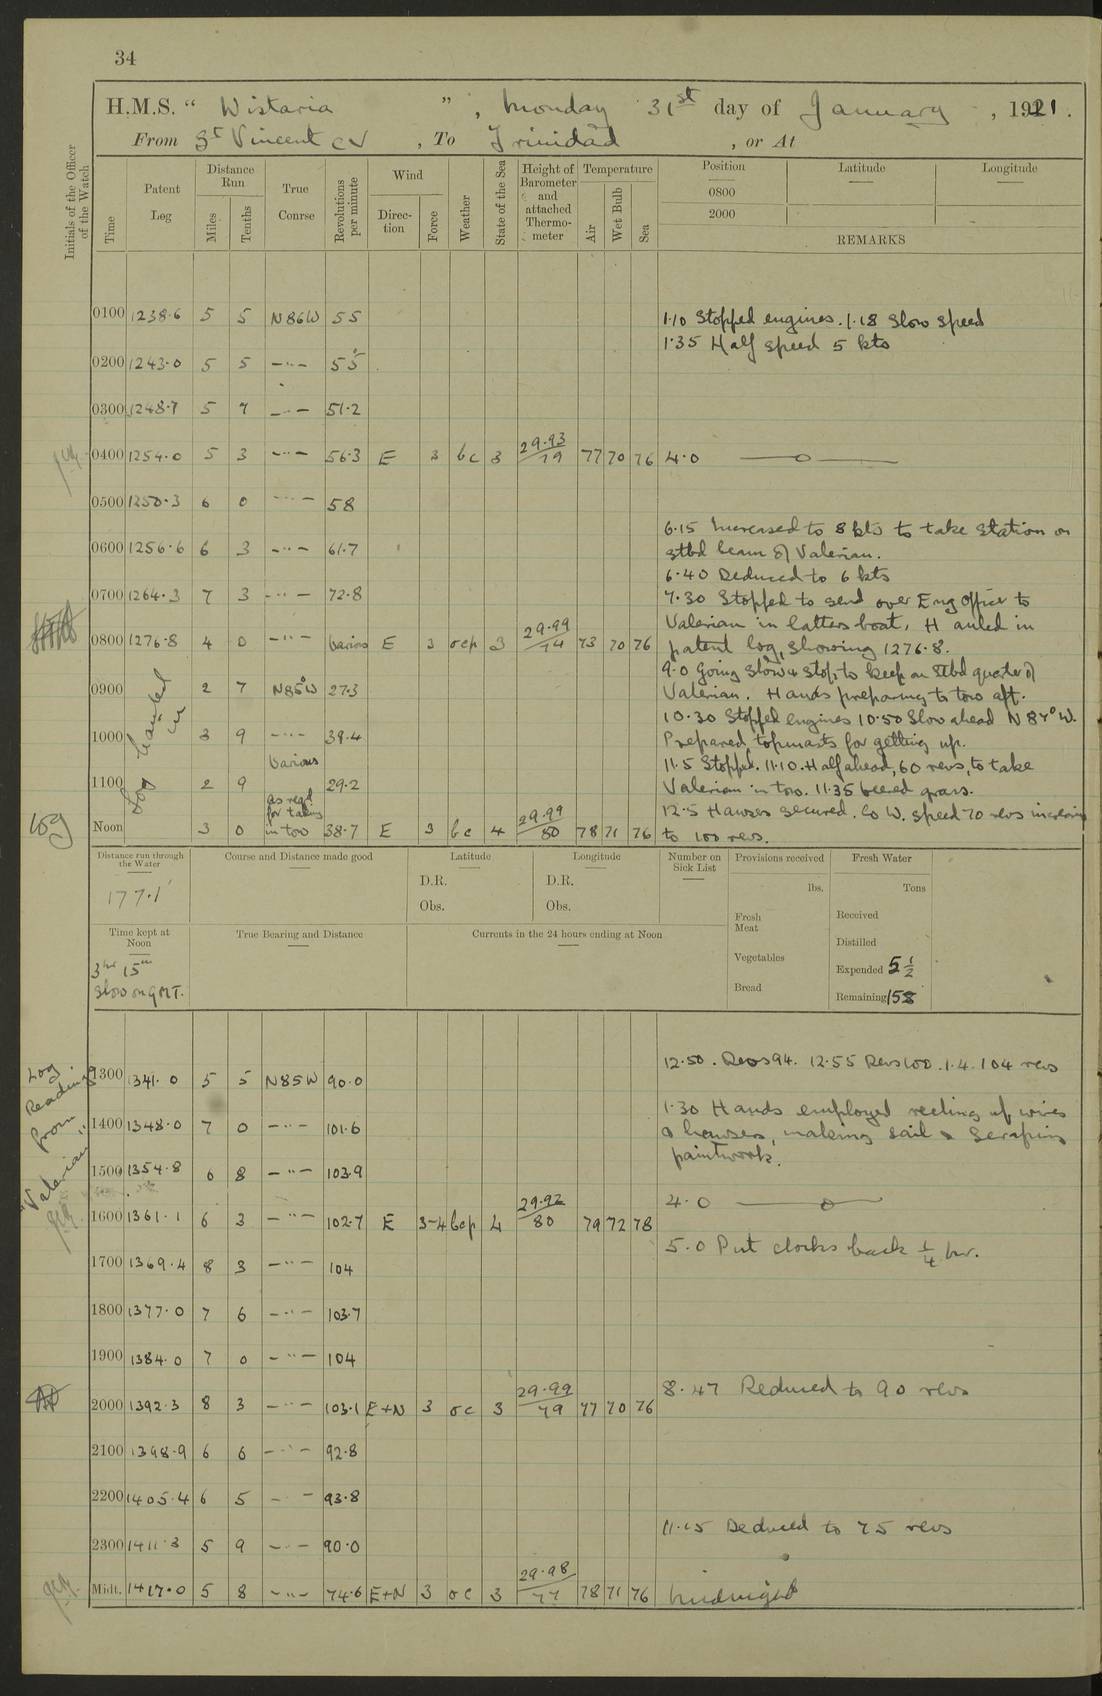 34
H.M.S. “ Wistaria ” , Monday 31st day of January , 1921 .
From St Vincent CV , To Trinidad , or At
Initials of the Officer of the Watch
Time
Patent Log
Distance Run
Miles
Tenths
True Course
Revolutions per minute
Wind
Direction
Force
Weather
State of the Sea
Height of Barometer and attached Thermometer
Temperature
Air
Wet Bulb
Sea
Position Latitude Longitude
0800
2000
REMARKS
0100 1238.6 5 5 N86W 55 1.10 Stopped engines. 1.18 Slow speed
1.35 Half speed 5 kts
0200 1243.0 5 5 -"- 55
0300 1248.7 5 7 -"- 51.2
0400 1254.0 5 3 -"- 56.3 E 3 bc 3 29.93/79 77 70 76 4.0 —o—
0500 1250.3 6 0 -"- 58
6.15 Increased to 8 kts to take station on
0600 1256.6 6 3 -"- 61.7 stbd beam of Valerian.
6.40 Reduced to 6 kts
0700 1264.3 7 3 -"- 72.8 7.30 Stopped to send over Eng Officer to
Valerian in latters boat. Hauled in
0800 1276.8 4 0 -"- Various E 3 ocp 3 29.99/74 73 70 76 patent log, showing 1276.8.
9.0 Going slow & stop, to keep on stbd quarter of
0900 2 7 N85°W 27.3 Valerian. Hands preparing to tow aft.
Log handed in
10.30 Stopped engines 10.50 Slow ahead N87°W.
1000 3 9 -"- 39.4 Prepared topmasts for getting up.
Various 11.5 Stopped. 11.10. Half ahead, 60 revs, to take
1100 2 9 29.2 Valerian in tow. 11.35 veered grass.
as reqd for taking in tow
12.5 Hawser secured. Co W. speed 70 revs increasing
Noon 3 0 38.7 E 3 bc 4 29.99/80 78 71 76 to 100 revs.
Distance run through the Water
177.1
Course and Distance made good
Latitude
D.R.
Obs.
Longitude
D.R.
Obs.
Number on Sick List
Provisions received
lbs.
Fresh Meat
Vegetables
Bread
Fresh Water
Tons
Received
Distilled
Expended 5 1/2
Remaining 158
Time kept at Noon
3hr 15m
slow on GMT.
True Bearing and Distance
Currents in the 24 hours ending at Noon
Log Readings from "Valerian"
12.50. Revs 94. 12.55 Revs 100. 1.4. 104 revs
1300 1341.0 5 5 N85W 90.0
1.30 Hands employed reeling up wires
1400 1348.0 7 0 -"- 101.6 & hawsers, making sail & scraping
paintwork.
1500 1354.8 6 8 -"- 103.9
4.0 —o—
1600 1361.1 6 3 -"- 102.7 E 3-4 bcp 4 29.92/80 79 72 78
5.0 Put clocks back 1/4 hr.
1700 1369.4 8 3 -"- 104
1800 1377.0 7 6 -"- 103.7
1900 1384.0 7 0 -"- 104
8.47 Reduced to 90 revs
2000 1392.3 8 3 -"- 103.1 E+N 3 oc 3 29.99/79 77 70 76
2100 1398.9 6 6 -"- 92.8
2200 1405.4 6 5 -"- 93.8
11.15 Reduced to 75 revs
2300 1411.3 5 9 -"- 90.0
Midt. 1417.0 5 8 -"- 74.6 E+N 3 oc 3 29.98/77 78 71 76 Midnight